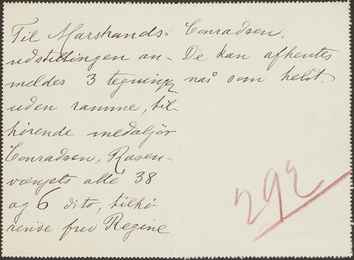 Til Marstrands-
udstillingen an-
meldes 3 tegninger
uden ramme, til-
hørende medaljør
Conradsen, Rosen-
vængets allé 38
og 6 dito, tilhø-
rende frøk Regine
Conradsen.
De kan afhentes
når som helst.
292